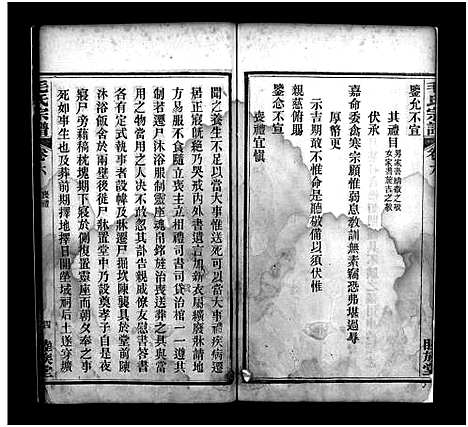 毛氏宗譜
鑒允不宣
其禮目
伏承
嘉命委禽寒宗顧惟弱息教訓無素竊恐弗堪過辱
厚幣更
示吉期敢不惟命是聽敬備以須伏惟
親慈俯賜
鑒念不宣
喪禮宜慎
聞之養生不足以當大事惟送死可以當大事禮疾病遷
居正寢既絶乃哭戒內外書遺言加新衣屬纊廢牀請地
方易服不食隨立喪主立相禮司書司貨治棺一一遵其
制若遷尸沐浴服制靈座魂帛銘旌治喪送葬之具與當
用之物當用之人決不敢忽其訃告親戚僚友慰書答書
各有定式執事者設幃及牀遷尸掘坎陳襲具於堂前陳
沐浴飯含之具乃後徙尸牀置堂中乃設奠孝子自是夜
寢尸旁藉稿枕塊期下寢於側復置靈座而朝夕奉之一
死如事生也及葬前期擇地擇日開塋域祠后土遂穿壙
毛氏宗譜
卷六
喪禮
四
睦族堂